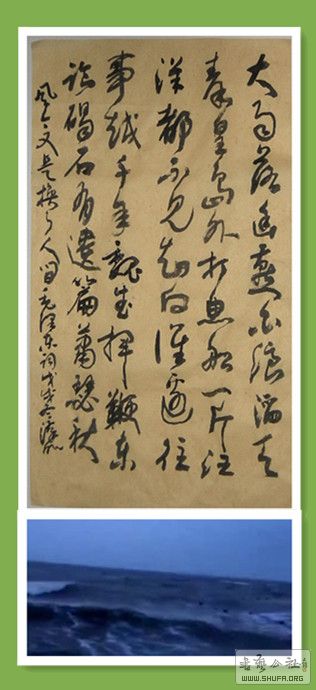 大雨落幽燕白浪滔天
秦皇岛外打鱼船一片汪
洋都不见知向谁边往
事越千年魏武挥鞭东
临碣石有遗篇萧瑟秋
风今又是换了人间毛泽东词戊戌冬
书法公社
WWW.SHUFA.ORG